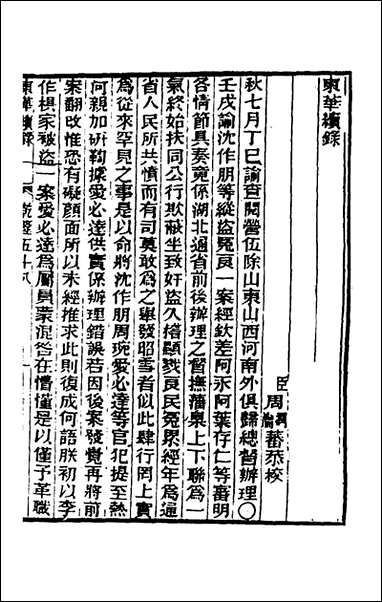 東華續錄
臣周潤蕃周瀹蕃恭校
秋七月丁巳諭查閱營伍除山東山西河南外俱歸總督辦理〇
壬戌諭沈作朋等縱盜冤良一案經欽差阿永阿葉存仁等審明
各情節具奏竟係湖北通省前後辦理之督撫藩臬上下聯為一
氣終始扶同公行欺蔽坐致奸盜久稽顯戮良民冤累經年為通
省人民所共憤而有司莫敢為之舉發昭雪者似此肆行罔上實
為從來罕見之事是以命將沈作朋周琬愛必達等官犯提至熱
河親加研鞫據愛必達供實係辦理錯誤若因後案發覺再將前
案翻改惟恐有礙顏面所以未經推求此則復成何語朕初以李
作棋家被盜一案愛必達為屬員蒙混咎在懵懂是以僅予革職
東華續錄 乾隆五十八